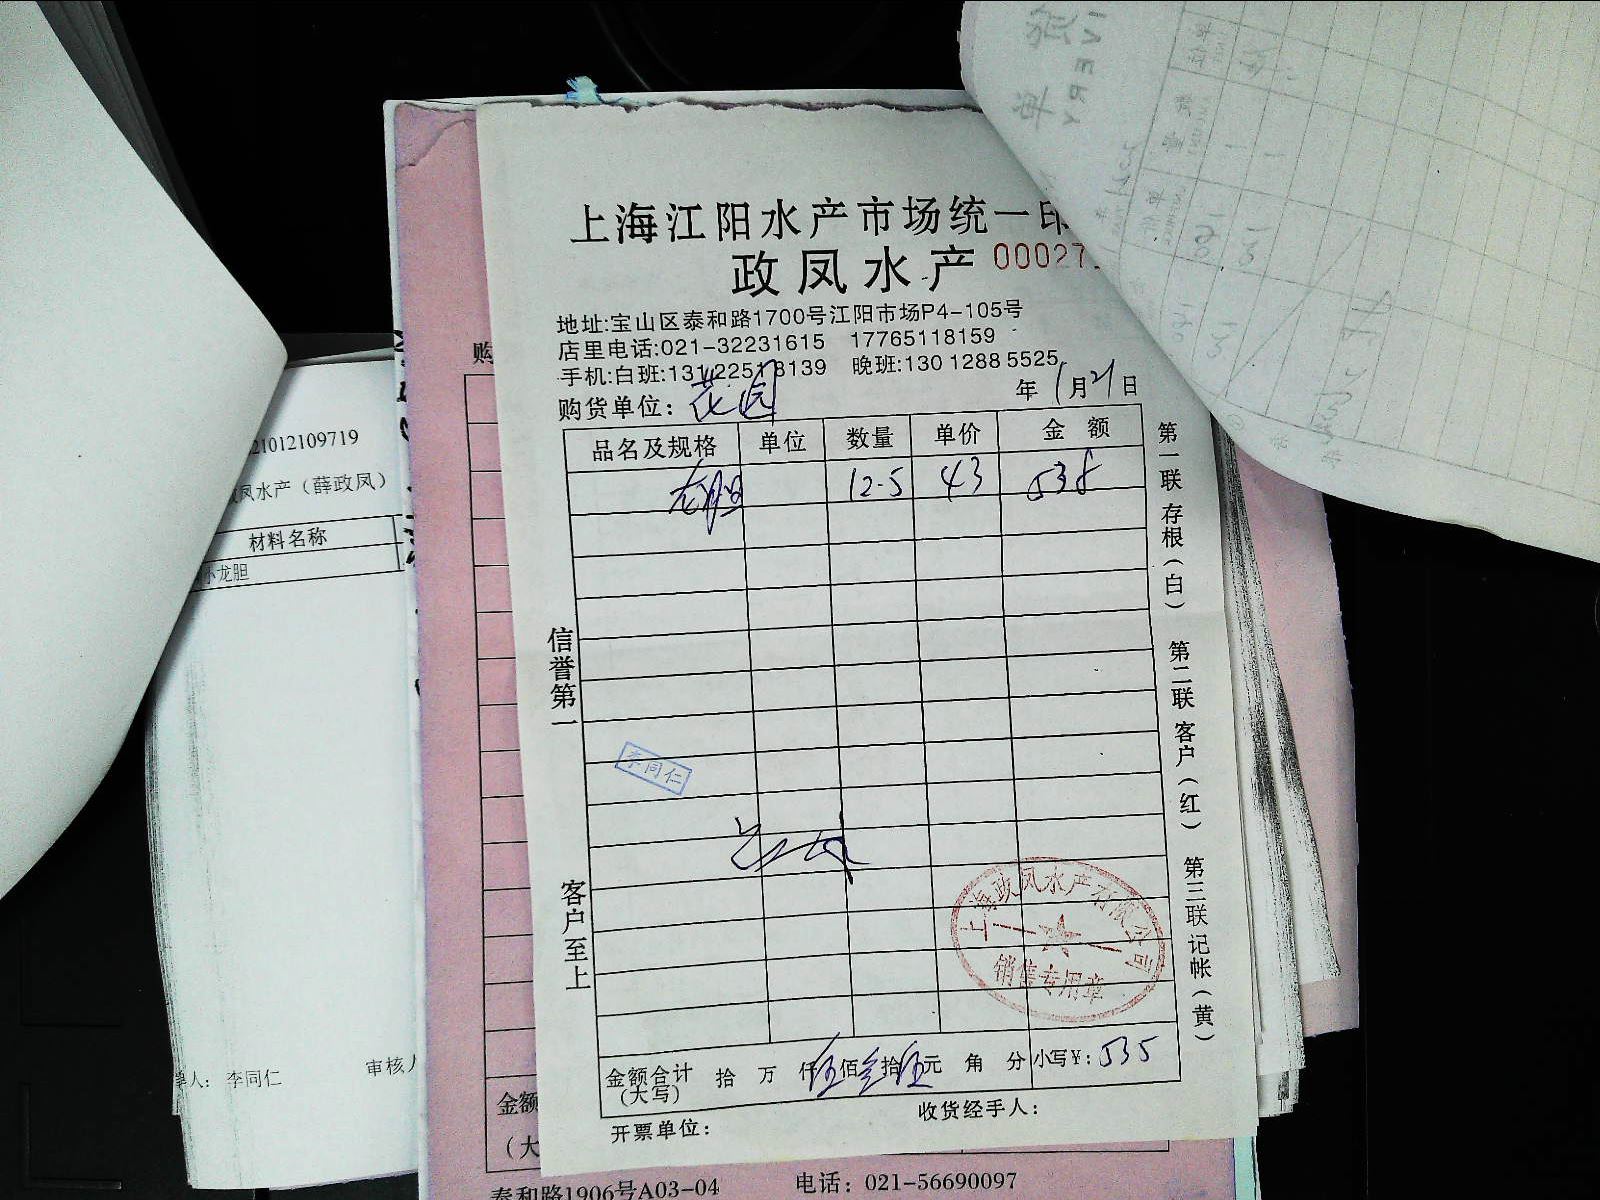 上海江阳水产市场统一印
政凤水产 00027
地址:宝山区泰和路1700号江阳市场P4-105号
店里电话:021-32231615 17765118159
手机:白班:131 2251 8139 晚班:130 1288 5525
购货单位: 花园 年 1月21日
品名及规格 单位 数量 单价 金 额
龙胆 12.5 43 538
第一联 存根(白) 第二联 客户(红) 第三联 记帐(黄)
信誉第一
客户至上
李同仁
上海政凤水产有限公司
销售专用章
金额合计 拾 万 仟伍佰叁拾伍元 角 分 小写¥: 535
(大写)
开票单位: 收货经手人:
21012109719
凤水产(薛政凤)
材料名称
小龙胆
单人: 李同仁 审核人
购
金额
(大
泰和路1906号A03-04 电话: 021-56690097
IVERY
单
数量
单价